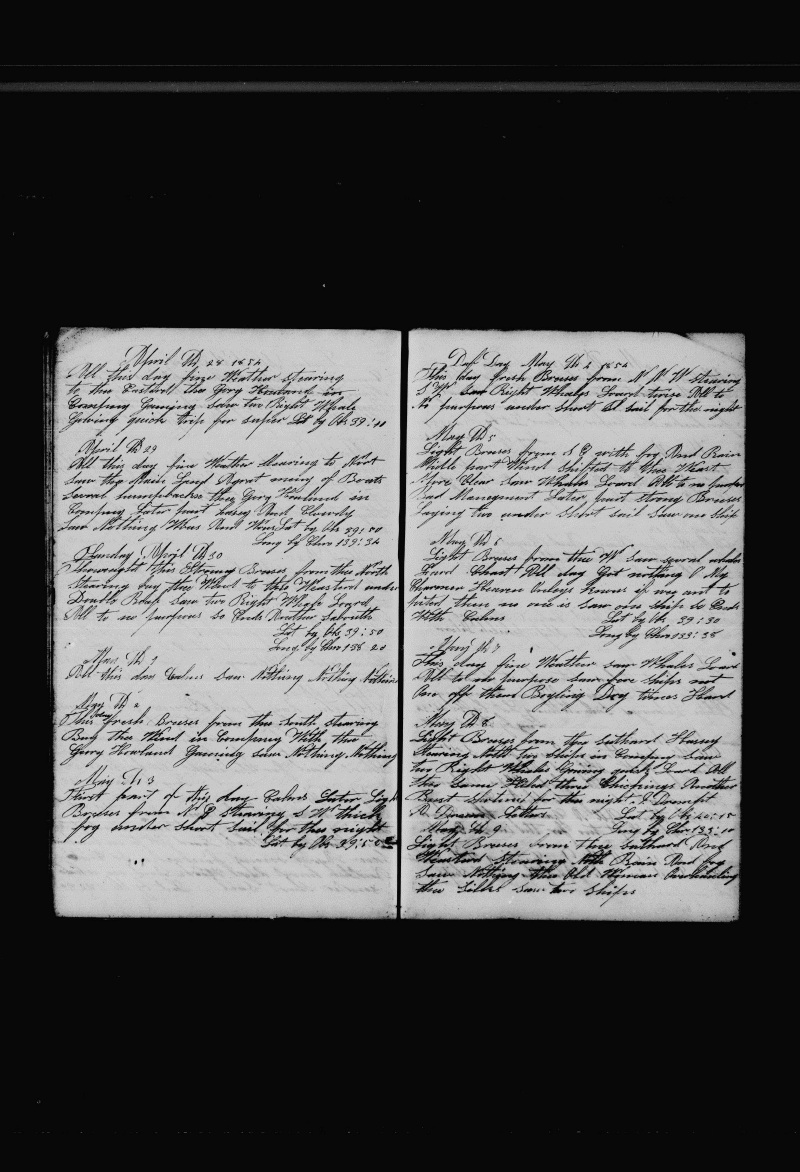 April Th 28 1854
All this day fine Weather stearing
to the Eastard the Gory Howland in
Company Gaming saw two Right Whale
Gowing quick Lat by Ob 39:40
April Th 29
All this day fine Weather Stearing to Nort
Saw the Main Land Agrat many of Boats
Several humpbackes the Gory Howland in
Company Later part Rainy And Cloudy
Saw Nothing Whas And Wins Lat by Obs 39:50
Long by Chro 139:34
Thursday April Th 30
Throweught this Strong Breses from the North
Stearing by the Wind to the Westard under
Double Reafs saw two Right Whale Loard
All to no purpous so Ends Another Saboath
Lat by Obs 39:50
Long by Chro 138 20
May Th 1
All this day Calms Saw Nothing Nothing Nothing
May Th 2
This day fresh Breses from the South stearing
By the Wind in Company With the
Gorry Howland Gaming saw Nothing Nothing
May Th 3
First part of this day Calms Later Ligh
Breses from N E Stearing S W thick
fog under Short Sail for the night
Lat by Obs 39:5
Day May Th 4 1854
This day fresh Breses from N N W stearing
S W Saw Right Whales Loard twice All to
No purpous under short sail for the night
May Th 5
Light Breses from S E with fog And Rain
Midle part Wind Shifted to the West
More Clear Saw Whales Loard All to no purpous
Bad Management Later part strong Breses
Laying two under Short sail saw one ship
May Th 6
Light Breses from the W saw sevral whales
Loard Chast All day Got nothing O My
Charmer Heaven only knows if weg not to
them no one is saw one ship so Ends
With Calms Lat by Ob 39:30
Long by Chro 133:38
May Th 7
This day fine Weather saw Whales Loard
All to no purpose saw fore ships not
One off them Boyling Dog times Hard
May Th 8
Light Breses from the suthard Hassey
Stearing North two Ships in Company saw
two Right Whales Going quick Loard All
the Same Another
for the night
Lat by Ob 40:15
May Th 9 Long by Chro 133:10
Light Breses from the suthard And
Westard Stearing Noth Rain And fog
Saw Nothing the Old Woman Overhauling
the Saw two Ships